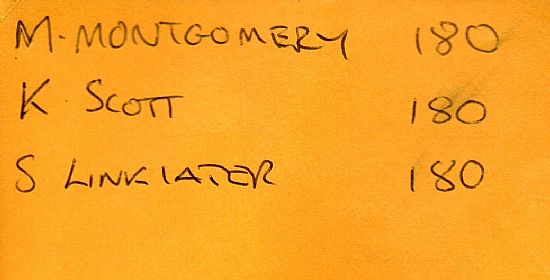 M. MONTGOMERY 180
K SCOTT 180
S LINKLATER 180